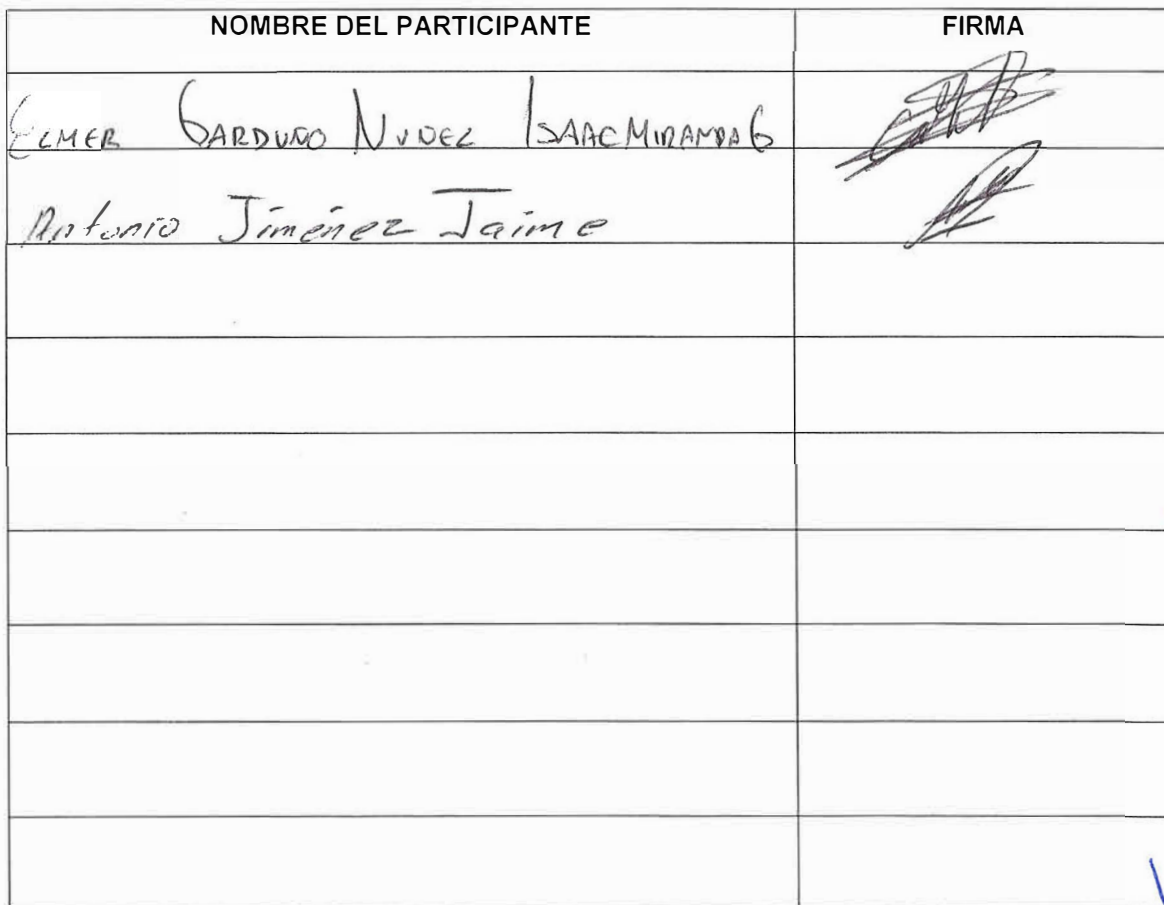 NOMBRE DEL PARTICIPANTE FIRMA
ELMER GARDUNO NUNEZ ISAAC MIRANDA G
Antonio Jiménez Jaime